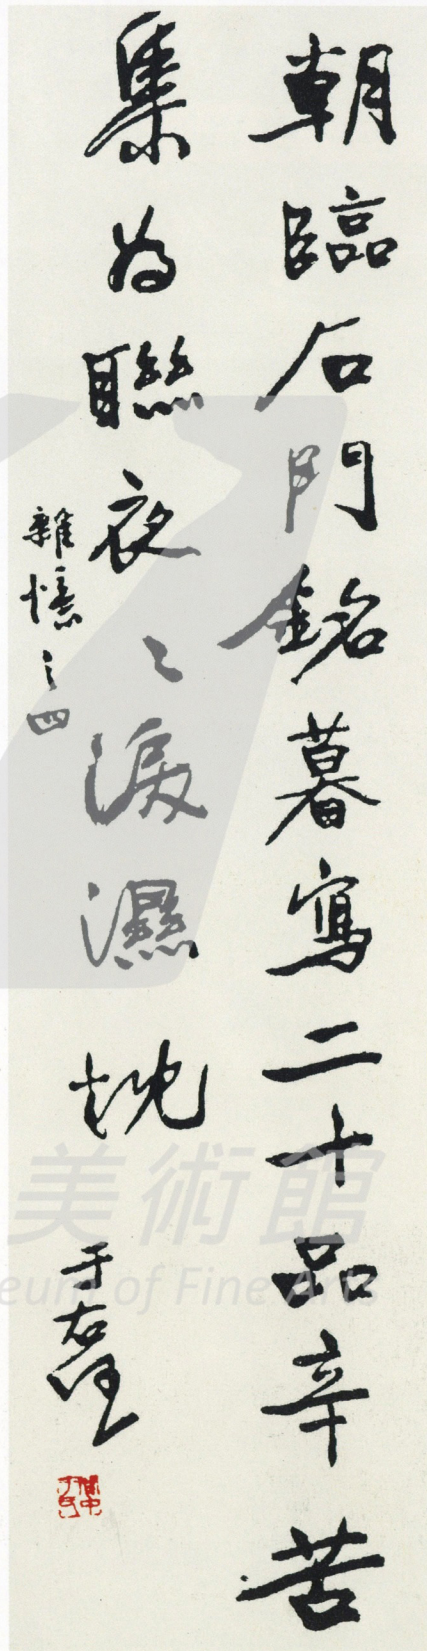 朝臨石門銘暮寫二十品辛苦
集為聯夜〻淚濕枕
雜憶之四
于右任
美術館
eum of Fine Arts